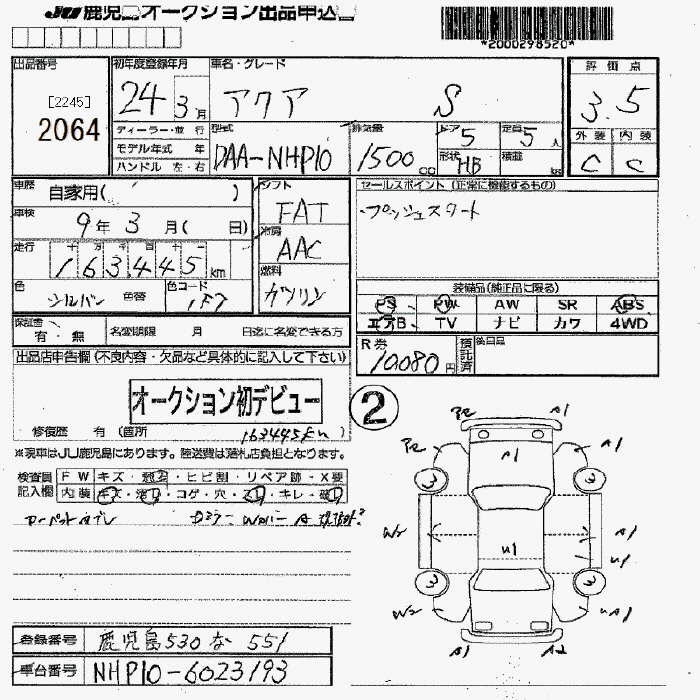 JU 鹿児島オークション出品申込書
*2000298520*
出品番号
[2245]
2064
初年度登録年月
24 3月
ディーラー・並 行
モデル年式 年
ハンドル 左・右
車名・グレード
アクア S
型式
DAA-NHP10
排気量
1500 cc
ドア 5
形状 HB
定員 5人
積載 kg
評価点
3.5
外装 内装
C C
車歴
自家用( )
車検
9年 3月( 日)
走行
十 万 千 百 十
163,445 km
色
シルバー 色替
色コード
1F7
シフト
FAT
冷房
AAC
燃料
ガソリン
セールスポイント (正常に機能するもの)
・プッシュスタート
装備品(純正品に限る)
PS PW AW SR ABS
エアB TV ナビ カワ 4WD
保証書
有・無
名変期限 月 日迄に名変できる方
R券
10,080円
預託済
後日品
出品店申告欄 (不良内容・欠品など具体的に記入して下さい)
オークション初デビュー
2
修復歴 有 (箇所 163445km )
※現車はJU鹿児島にあります。陸送費は落札店負担となります。
検査員
記入欄
FW キズ・ ・ヒビ割・リペア跡・X要
内装 キズ・ ・コゲ・穴・ ・キレ・
A1
A1
A1
W2
U1
A1
U1
3
3
3
3
W2
A1
A2
登録番号 鹿児島530 な 551
車台番号 NHP10-6023193